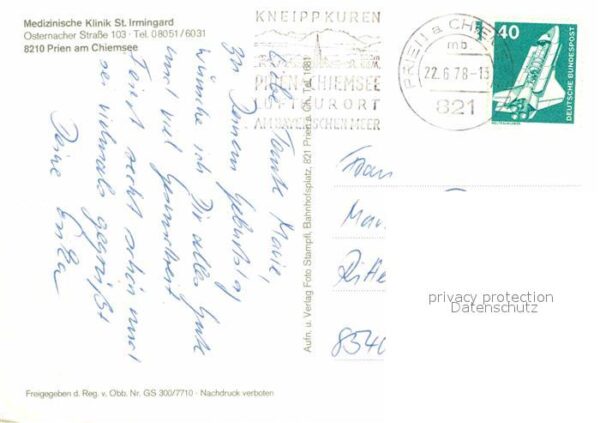 Medizinische Klinik St. Irmingard
Osternacher Straße 103 · Tel. 08051/6031
8210 Prien am Chiemsee
KNEIPPKUREN
PRIEN CHIEMSEE
LUFTKURORT
AM BAYERISCHEN MEER
PRIEN a CHIEM
mb
22.6.78-13
821
40
DEUTSCHE BUNDESPOST
Liebe Tante Marie,
Zu Deinem Geburtstag
wünsche ich Dir alles Gute
und viel Gesundheit
Feiert recht schön und
sei vielmals gegrüßt
Deine
Aufn. u. Verlag Foto Stampfl, Bahnhofsplatz, 821 Prien a. Ch., Tel. 1681
Frau
Mar
Ritte
8540
privacy protection
Datenschutz
Freigegeben d. Reg. v. Obb. Nr. GS 300/7710 · Nachdruck verboten